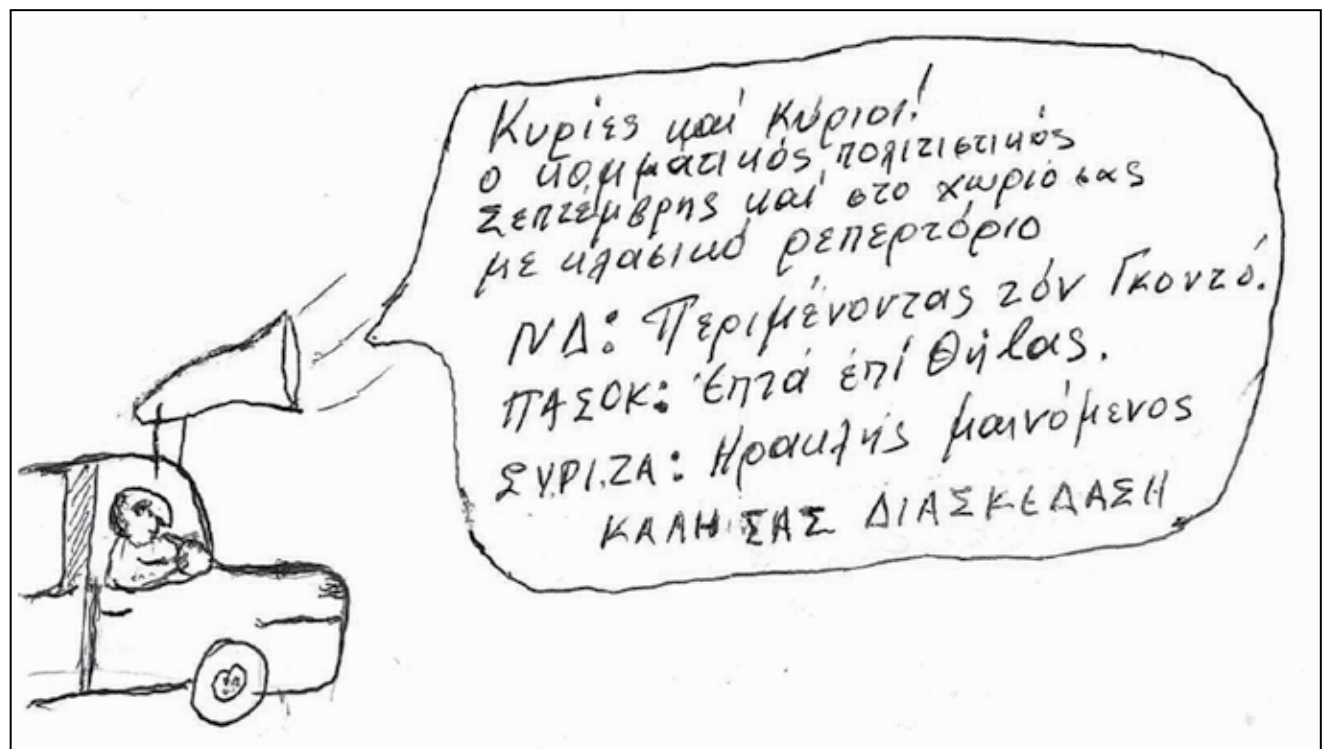 Κυρίες καί κύριοι!
ο κομματικός πολιτιστικός
Σεπτέμβρης καί στο χωριό σας
με κλασικό ρεπερτόριο
ΝΔ: Περιμένοντας τόν Γκοντό.
ΠΑΣΟΚ: Έπτά έπί Θήβας.
ΣΥΡΙΖΑ: Ηρακλής μαινόμενος
ΚΑΛΗ ΣΑΣ ΔΙΑΣΚΕΔΑΣΗ